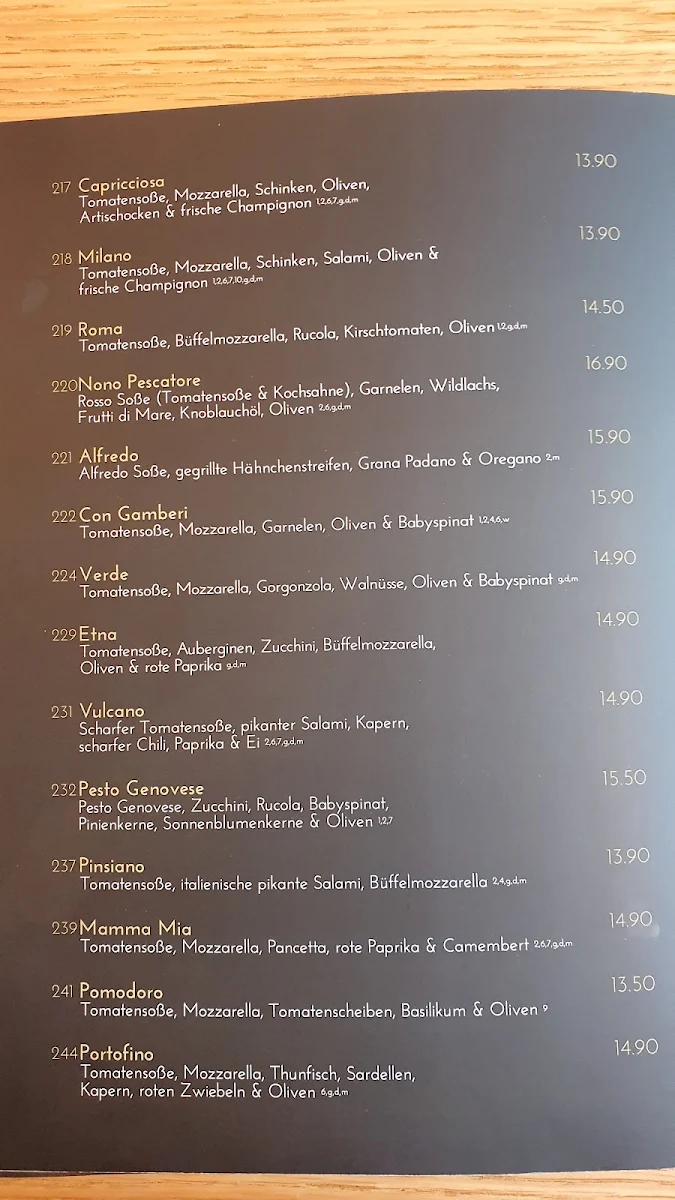 13.90
217 Capricciosa
Tomatensoße, Mozzarella, Schinken, Oliven,
Artischocken & frische Champignon 1,2,6,7,g,d,m
13.90
218 Milano
Tomatensoße, Mozzarella, Schinken, Salami, Oliven &
frische Champignon 1,2,6,7,10,g,d,m
14.50
219 Roma
Tomatensoße, Büffelmozzarella, Rucola, Kirschtomaten, Oliven 1,2,g,d,m
16.90
220 Nono Pescatore
Rosso Soße (Tomatensoße & Kochsahne), Garnelen, Wildlachs,
Frutti di Mare, Knoblauchöl, Oliven 2,6,g,d,m
15.90
221 Alfredo
Alfredo Soße, gegrillte Hähnchenstreifen, Grana Padano & Oregano 2,m
15.90
222 Con Gamberi
Tomatensoße, Mozzarella, Garnelen, Oliven & Babyspinat 1,2,4,6,w
14.90
224 Verde
Tomatensoße, Mozzarella, Gorgonzola, Walnüsse, Oliven & Babyspinat g,d,m
14.90
229 Etna
Tomatensoße, Auberginen, Zucchini, Büffelmozzarella,
Oliven & rote Paprika g,d,m
14.90
231 Vulcano
Scharfer Tomatensoße, pikanter Salami, Kapern,
scharfer Chili, Paprika & Ei 2,6,7,g,d,m
15.50
232 Pesto Genovese
Pesto Genovese, Zucchini, Rucola, Babyspinat,
Pinienkerne, Sonnenblumenkerne & Oliven 1,2,7
13.90
237 Pinsiano
Tomatensoße, italienische pikante Salami, Büffelmozzarella 2,4,g,d,m
14.90
239 Mamma Mia
Tomatensoße, Mozzarella, Pancetta, rote Paprika & Camembert 2,6,7,g,d,m
13.50
241 Pomodoro
Tomatensoße, Mozzarella, Tomatenscheiben, Basilikum & Oliven 9
14.90
244 Portofino
Tomatensoße, Mozzarella, Thunfisch, Sardellen,
Kapern, roten Zwiebeln & Oliven 6,g,d,m